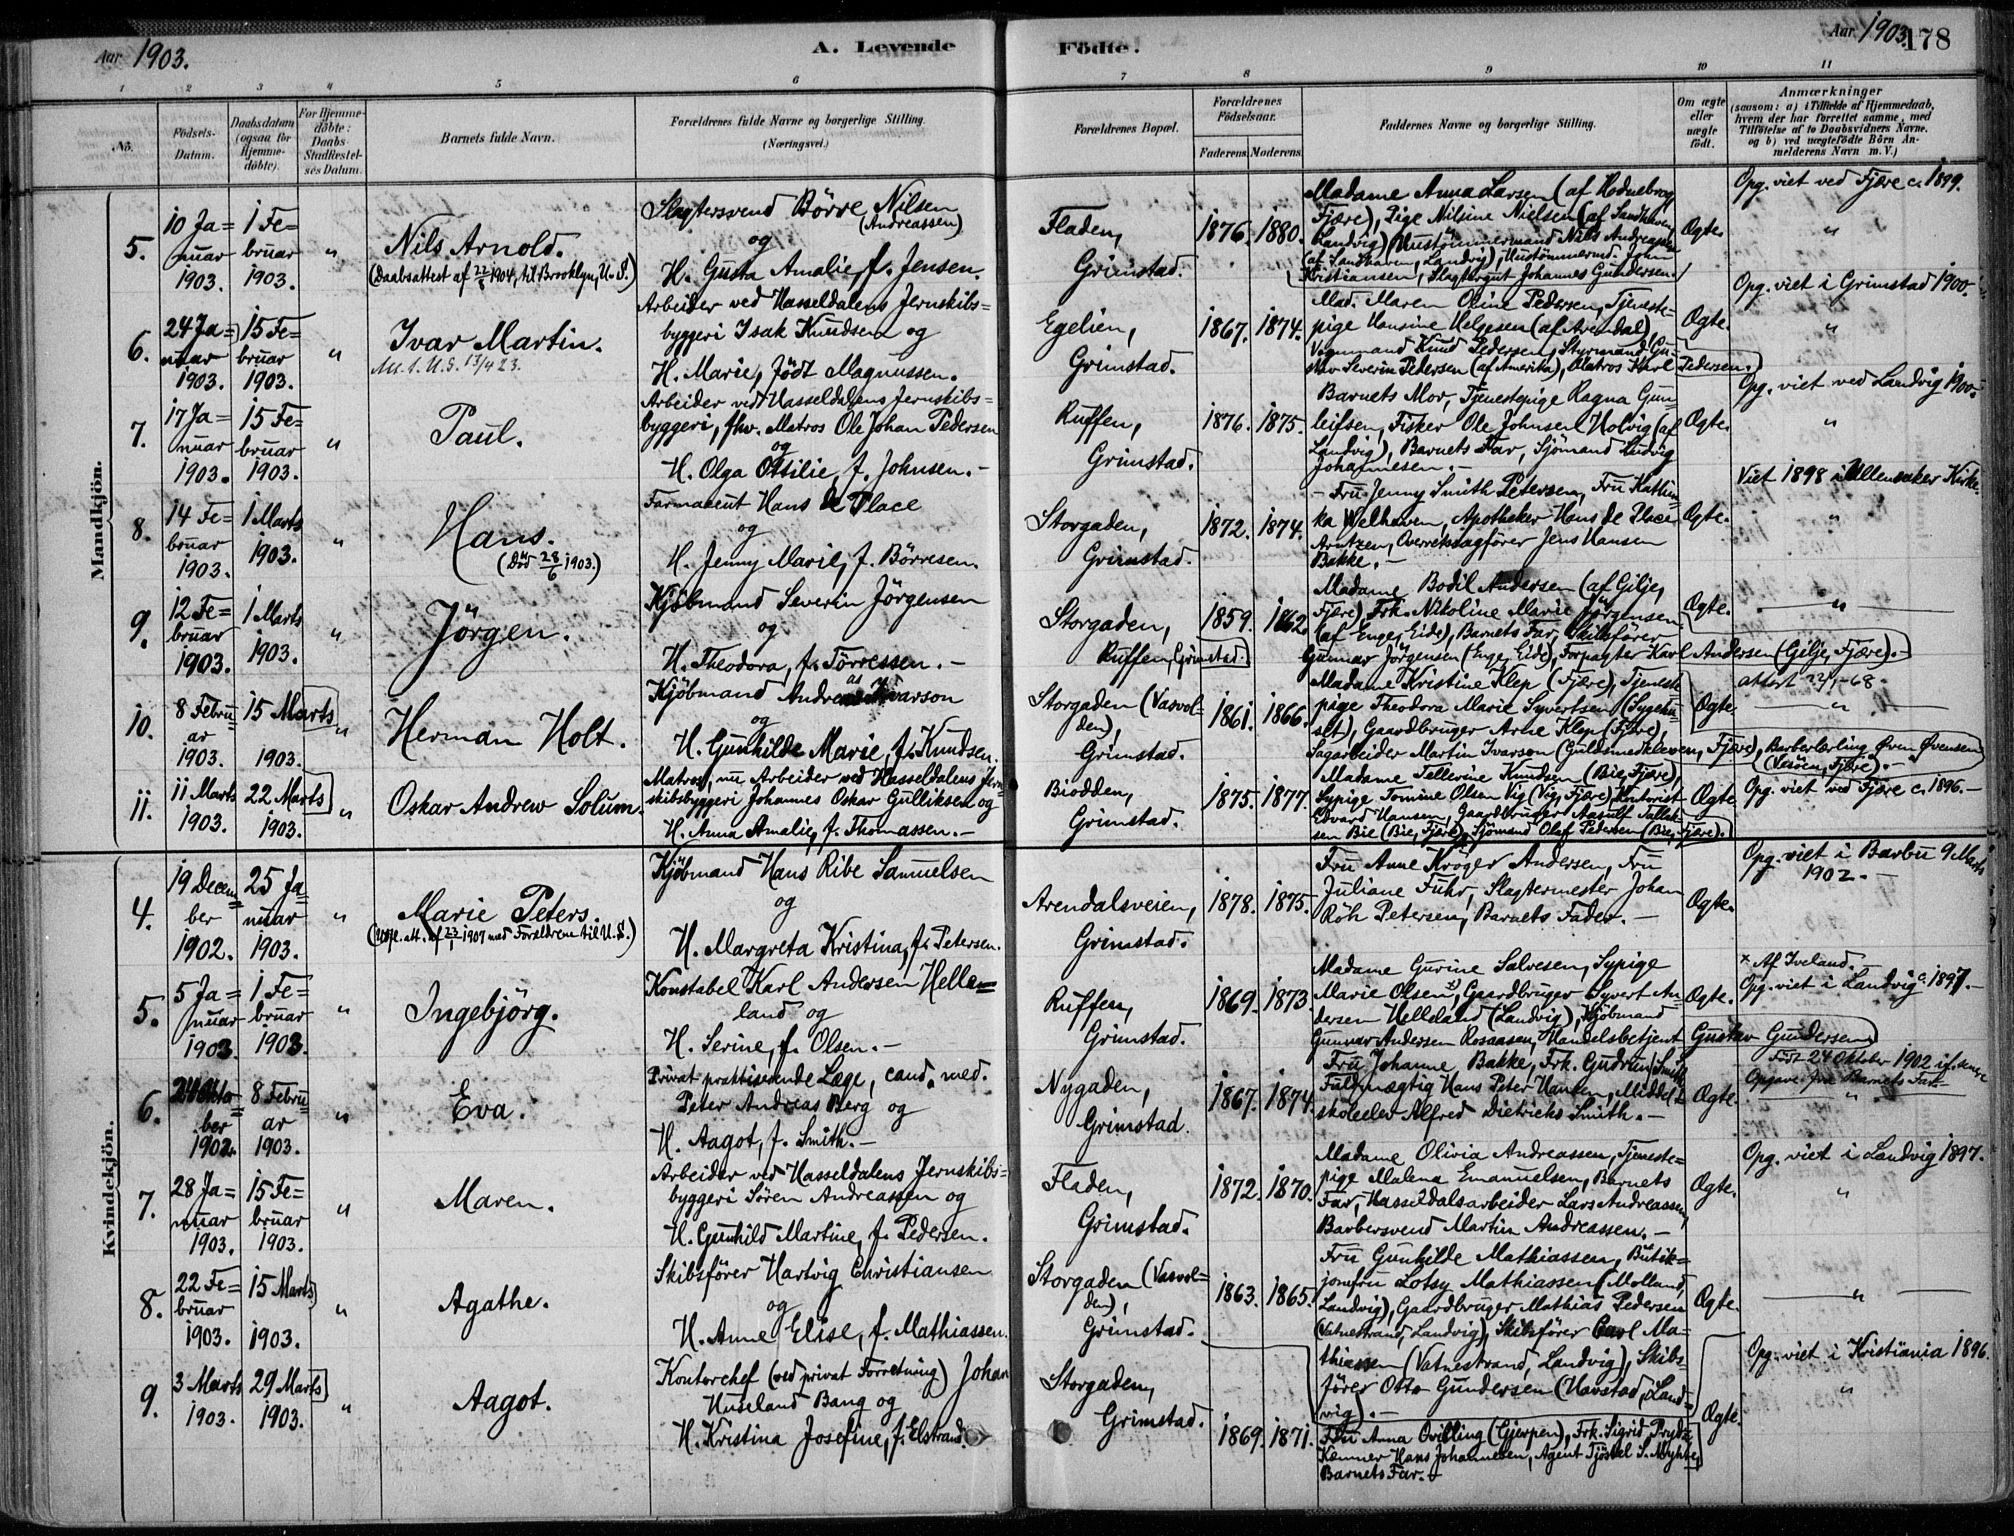 Aar 1903. A. Levende Födte. Aar 1903. 178
1 2 3 4 5 6 7 8 9 10 11
No. Födsels-Datum. Daabsdatum (ogsaa for Hjemme-döbte). For Hjemme-döbte: Daabs-Stadfæstel-ses Datum. Barnets fulde Navn. Forældrenes fulde Navne og borgerlige Stilling. (Næringsvei.) Forældrenes Bopæl. Forældrenes Födselsaar. Faderens. Moderens. Faddernes Navne og borgerlige Stilling. Om ægte eller uægte födt. Anmærkninger (saasom: a) i Tilfælde af Hjemmedaab, hvem der har forrettet samme, med Tilföielse af to Daabsvidners Navne, og b) ved uægtefödte Börn An-melderens Navn m. V.)
Mandkjön.
5. 10 Ja=nuar 1903. 1 Fe=bruar 1903. "
Nils Arnold.
(Daabsattest af 22/1904, til Brooklyn, U. S.)
Slagtersvend Börre Nilsen
(Andreassen)
og
H. Gusta Amalie, f. Jensen.
Fladen,
Grimstad.
1876. 1880.
Madame Anna Larsen (af Hodnebrog
Fjære), Pige Nilsine Nielsen (af Sandhaven,
Landvig), Hustömmermand Nils Andreassen
(af Sandhaven, Landvig), Hustömmermd. John
Kristiansen, Slagtergut Johannes Gundersen.
Ægte.
Opg. viet ved Fjære c. 1899.
"
6. 24 Ja=nuar 1903. 15 Fe=bruar 1903. "
Ivar Martin.
13/4 23.
Arbeider ved Hasseldalens Jernskibs=
byggeri Isak Knudsen og
H. Marie, födt Magnussen.
Egelien,
Grimstad.
1867. 1874.
Mad. Maren Oline Pedersen, Tjeneste=
pige Hansine Helgesen (af Arendal),
Vognmand Knud Pedersen, Styrmand Gu-
stav Severin Pedersen (af Amerika), Matros Karl Pedersen.
Ægte.
Opg. viet i Grimstad 1900.
"
7. 17 Ja=nuar 1903. 15 Fe=bruar 1903. "
Paul.
Arbeider ved Hasseldalens Jernskibs=
byggeri, fhv. Matros Ole Johan Pedersen
og
H. Olga Ottilie, f. Johnsen. -
Ruffen,
Grimstad.
1876. 1875.
Barnets Mor, Tjenestepige Ragna Gun-
leifsen, Fisker Ole Johnsen Holvig (af
Landvig), Barnets Far, Sjömand Ludvig
Johannesen. -
Ægte.
Opg. viet ved Landvig 1900.
"
8. 14 Fe=bruar 1903. 1 Marts 1903. "
Hans.
(Död 28/6 1903.)
Farmaceut Hans de Place
og
H. Jenny Marie, f. Börresen.
Storgaden,
Grimstad.
1872. 1874.
- Fru Jenny Smith Petersen, Fru Kathin-
ka Welhaven, Apotheker Hans de Place
Arntzen, Overretssagförer Jens Hansen
Bakke. -
Ægte.
Viet 1898 i Ullensaker Kirke.
"
9. 12 Fe=bruar 1903. 1 Marts 1903. "
Jörgen.
Kjöbmand Severin Jörgensen
og
H. Theodora, f. Törressen. -
Storgaden,
Ruffen, Grimstad.
1859. 1862.
Madame Bodil Andersen (af Gilje,
Fjære), Frk. Nikoline Marie Jörgensen
(af Enge, Eide), Barnets Far, Skibsförer
Gunnar Jörgensen (Enge, Eide), Forpagter Karl Andersen (Gilje, Fjære). -
Ægte.
"
10. 8 Febru=ar 1903. 15 Marts 1903. "
Herman Holt.
Kjöbmand Andreas Ivarson
og
H. Gunhilde Marie, f. Knudsen.
Storgaden (Vasvol=
den),
Grimstad.
1861. 1866.
Madame Kristine Klep (Fjære), Tjeneste=
pige Theodora Marie Syvertsen (Sygehu-
set), Gaardbruger Arne Klep (Fjære),
Sagarbeider Martin Ivarson (Guldsmedkleven, Fjære), Barberlærling Öven Övensen
(Vesöen, Fjære). -
Ægte
attest 22/1-68.
"
11. 11 Marts 1903. 22 Marts 1903. "
Oskar Andrew Solum.
Matros, nu Arbeider ved Hasseldalens Jern
skibsbyggeri Johannes Oskar Gulliksen og
H. Anna Amalie, f. Thomassen. -
Brodden,
Grimstad.
1875. 1877.
Madame Tellerine Knudsen (Bie, Fjære),
Sypige Tomine Olsen Vig (Vig, Fjære), Kontorist
Edvard Hansen, Gaardbruger Aasulf Tallak-
sen Bie (Bie, Fjære), Sjömand Olaf Pedersen (Bie, Fjære).
Ægte
Opg. viet ved Fjære c. 1896. -
Kvindekjön.
4. 19 Decem=ber 1902. 25 Ja=nuar 1903. "
Marie Peters.
(Udfl. att. af 23/1 1907 med Forældrene til U. S.)
Kjöbmand Hans Ribe Samuelsen
og
H. Margreta Kristina, f. Petersen.
Arendalsveien,
Grimstad.
1878. 1875.
Fru Anne Kröger Andersen, Fru
Juliane Fuhr, Slagtermester Johan
Röh Petersen, Barnets Fader. -
Ægte.
Opg. viet i Barbu 9 Marts
1902. -
5. 5 Ja=nuar 1903. 1 Fe=bruar 1903. "
Ingebjörg.
Konstabel Karl Andersen Helle=
land og
H. Serine, f. Olsen. -
Ruffen,
Grimstad.
1869. 1873.
Madame Gurine Salvesen, Sypige
Marie Olsen x), Gaardbruger Syvert An-
dersen Helleland (Landvig), Kjöbmand
Gunnar Andersen Rosaasen, Handelsbetjent Gustav Gundersen.
Ægte.
x Af Iveland.
Opg. viet i Landvig c. 1897. -
6. 24 Okto=ber 1902. 8 Febru=ar 1903. "
Eva.
Privat praktiserende Læge, cand. med.
Peter Andreas Berg og
H. Aagot, f. Smith. -
Nygaden,
Grimstad.
1867. 1874.
Fru Johanne Bakke, Frk. Gudrun Smith
Fuldmægtig Hans Peter Hanke, Middel=
skoleelev Alfred Dietrichs Smith. -
Ægte.
Födt 24 Oktober 1902 if. senere
Opgave fra Barnets Far
"
7. 28 Ja=nuar 1903. 15 Fe=bruar 1903. "
Maren.
Arbeider ved Hasseldalens Jernskibs=
byggeri Sören Andreassen og
H. Gunhild Martine, f. Pedersen.
Fladen,
Grimstad.
1872. 1870.
Madame Olivia Andreassen, Tjeneste=
pige Malena Emanuelsen, Barnets
Far, Hasseldalsarbeider Lars Andreassen,
Barbersvend Martin Andreassen. -
Ægte.
Opg. viet i Landvig 1897.
"
8. 22 Fe=bruar 1903. 15 Marts 1903. "
Agathe.
Skibsförer Hartvig Christiansen
og
H. Anne Elise, f. Mathiassen.
Storgaden (Vasvol=
den),
Grimstad.
1863. 1865.
Fru Gunhilde Mathiassen, Butik=
jomfru Lotsy Mathiassen (Molland,
Landvig), Gaardbruger Mathias Pedersen
(Vatnestrand, Landvig), Skibsförer Carl Ma=
thiassen (Vatnestrand, Landvig), Skibs-
förer Otto Gundersen (Havstad, Land-
vig). -
Ægte.
"
9. 3 Marts 1903. 29 Marts 1903. "
Aagot.
Kontorchef (ved privat Forretning) Johan
Huseland Bang og
H. Kristina Josefine, f. Elstrand.
Storgaden,
Grimstad.
1869. 1871.
Fru Anna Qvilling (Gjerpen), Frk. Sigrid Prydz,
Kæmner Hans Johannesen, Agent Tjöstel S. Myhre,
Barnets Far. -
Ægte.
Opg. viet i Kristiania 1896.
"